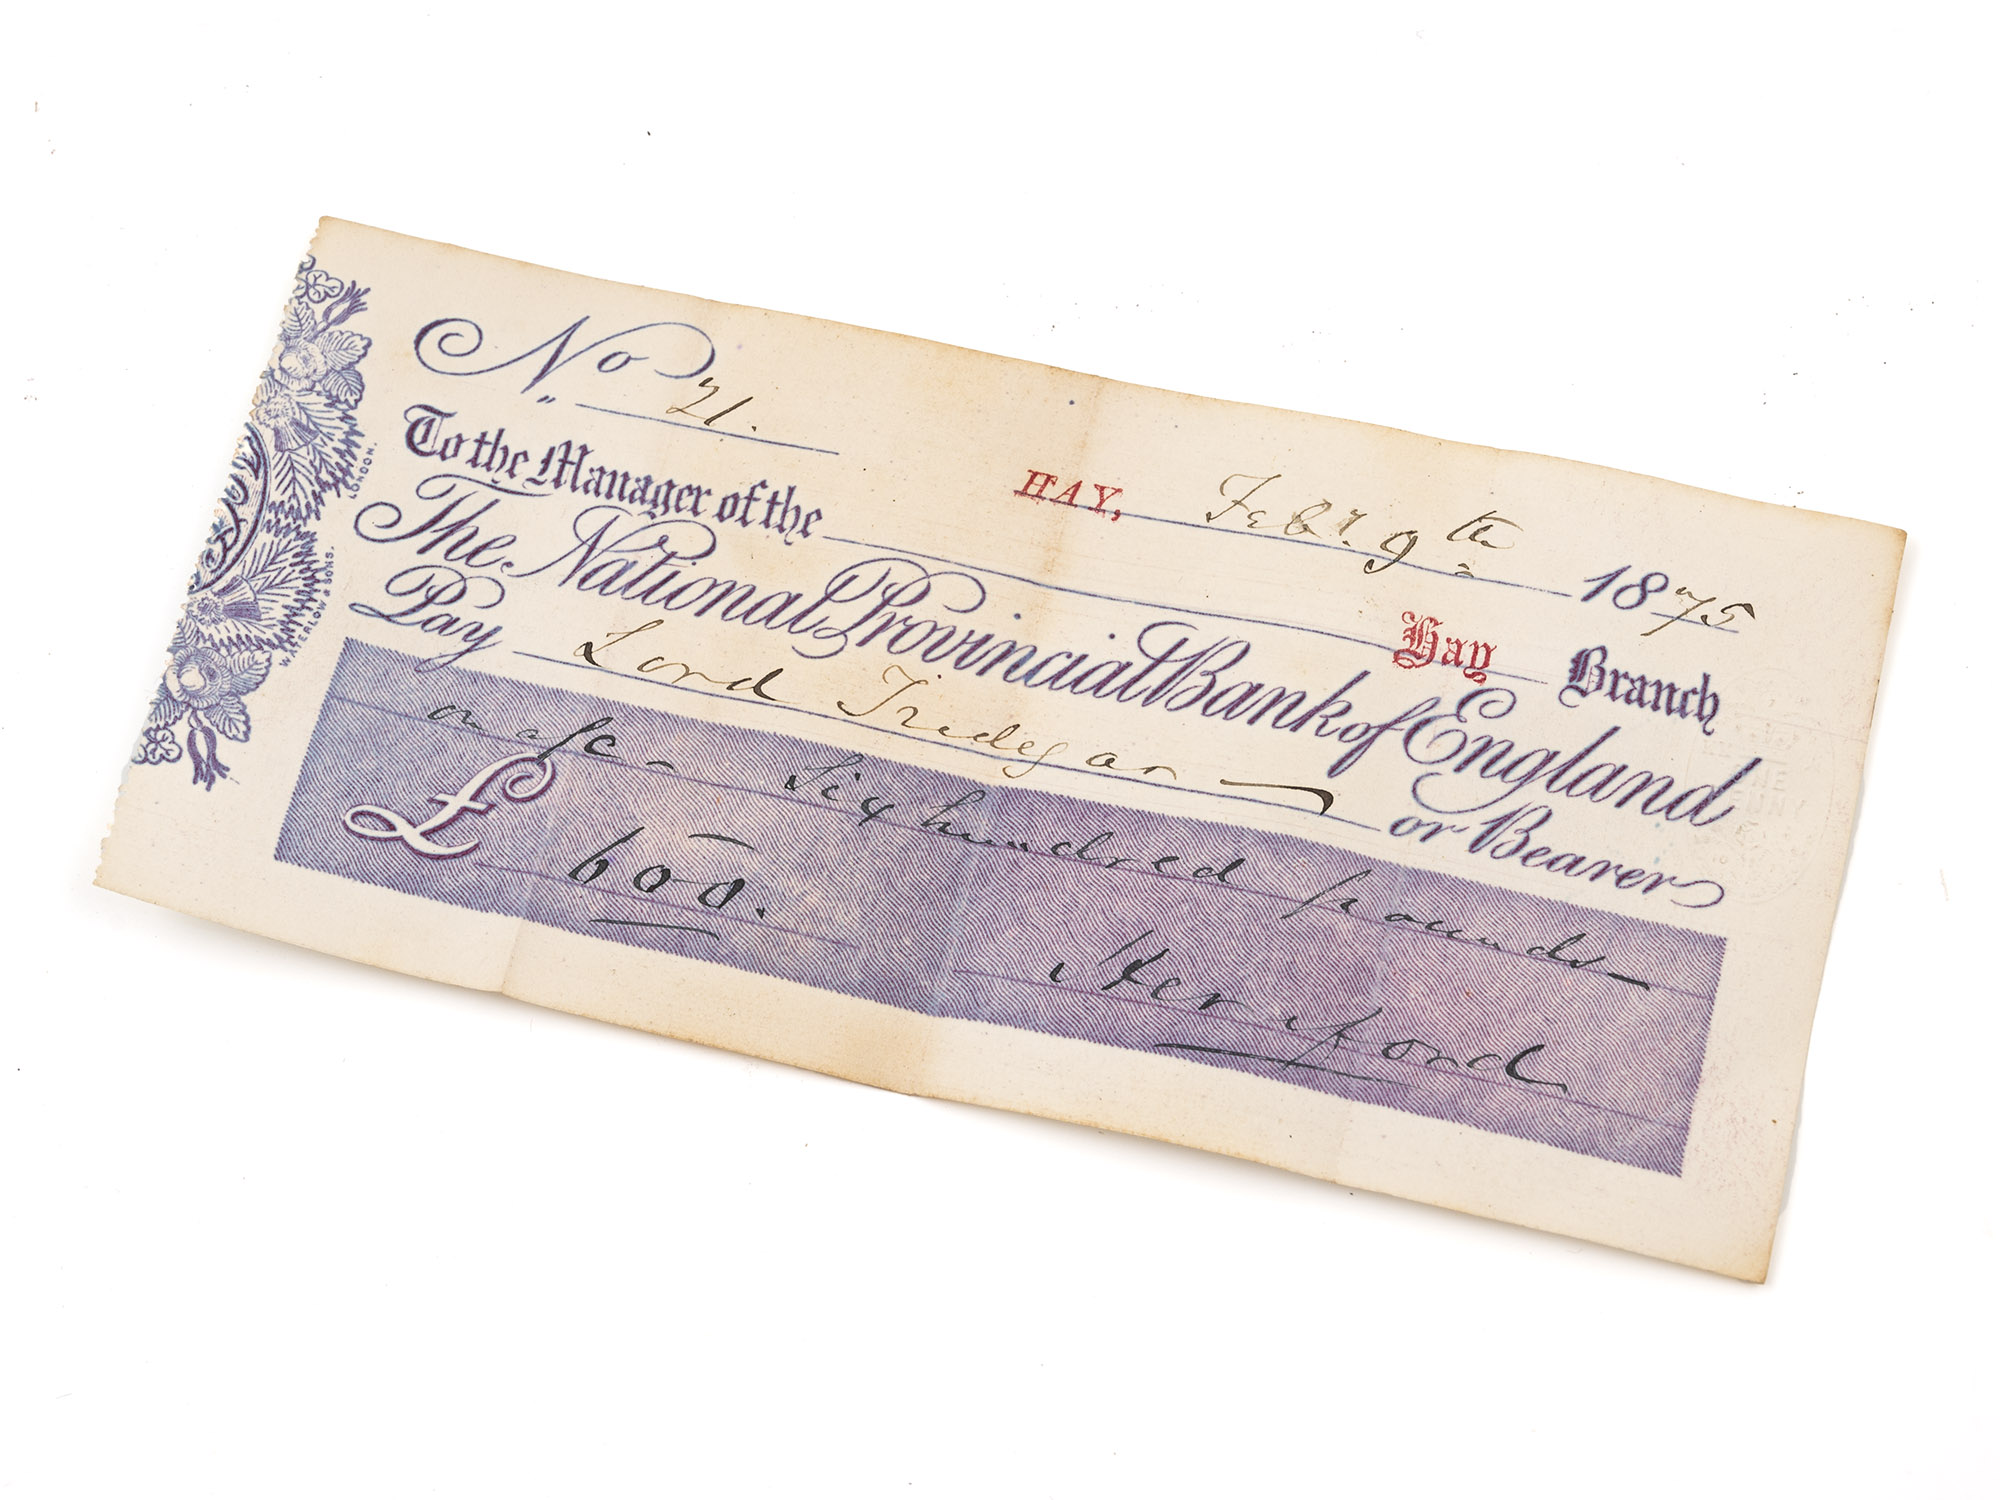 No 21.
HAY, Feby. 9th 1875
To the Manager of the Hay Branch
The National Provincial Bank of England
Pay Lord Tredegar or Bearer
Six hundred pounds
£ 600.
Hereford
WATERLOW & SONS. LONDON.